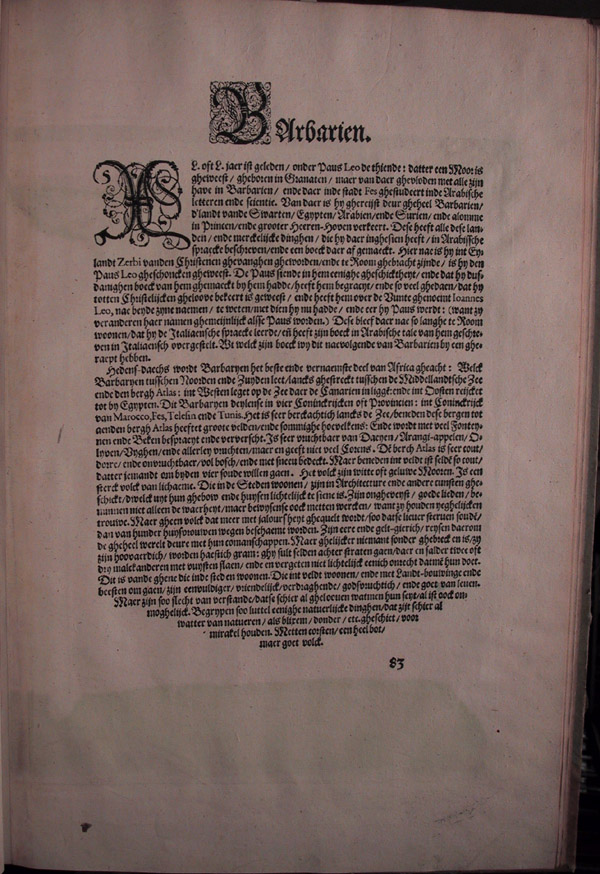 BArbarien.
AL. oft L. jaer ist geleden / onder Paus Leo de thiende: datter een Moor is
gheweest / gheboren in Granaten / maer van daer ghevloden met alle zijn
have in Barbarien / ende daer inde stadt Fes ghestudeert inde Arabische
letteren ende scientie. Van daer is hy ghereijst deur gheheel Barbarien /
d'landt vande Swarten / Egypten / Arabien / ende Surien / ende alomme
in Princen / ende grooter Heeren-Hoven verkeert. Dese heeft alle dese lan-
den / ende merckelijcke dinghen / die hy daer inghesien heeft / in Arabische
spraecke beschreven / ende een boeck daer af gemaeckt. Hier nae is hy int Ey-
landt Zerbi vanden Christenen ghevanghen gheworden / ende te Room ghebracht zijnde / is hy den
Paus Leo gheschoncken gheweest. De Paus siende in hem eenighe gheschicktheyt / ende dat hy dus-
danighen boeck van hem ghemaeckt by hem hadde / heeft hem begraeyt / ende so veel ghedaen / dat hy
totten Christelijcken gheloove bekeert is geweest / ende heeft hem over de Vunte ghenoemt Ioannes
Leo, nae beyde zyne naemen / te weten / met dien hy nu hadde / ende eer hy Paus werdt: (want zy
veranderen haer namen ghemeijnlijck alsse Paus worden.) Dese bleef daer nae so langhe te Room
woonen / dat hy de Italiaensche spraecke leerde / eñ heeft zijn boeck in Arabische tale van hem geschre-
ven in Italiaensch overgestelt. Wt welck zijn boeck wy dit naevolgende van Barbarien by een ghe-
raept hebben.
Hedens-daechs wordt Barbaryen het beste ende vernaemste deel van Africa gheacht: Welck
Barbaryen tusschen Noorden ende Zuyden leet / lancks ghestreckt tusschen de Middellandtsche Zee
ende den bergh Atlas: int Westen leget op de Zee daer de Canarien in liggē: ende int Oosten reijcket
tot by Egypten. Dit Barbaryen deylense in vier Coninckrijcken oft Provincien: int Coninckrijck
van Marocco, Fes, Telesin ende Tunis. Het is seer berckachtich lancks de Zee / beneden dese bergen tot
aenden bergh Atlas heeftet groote velden / ende sommighe hoevelkens: Ende wordt met veel Fontey-
nen ende Beken bespraeyt ende ververscht. Is seer vruchtbaer van Dacyen / Arangi-appelen / O-
lyven / Vyghen / ende allerley vruchten / maer en geeft niet veel Corens. Dē berch Atlas is seer cout /
dorre / ende onvruchtbaer / vol bosch / ende met sneeu bedeckt. Maer beneden int veldt ist seldē so cout /
datter iemandt om byden vier soude willen gaen. Het volck zijn witte oft geluwe Mooren. Is een
sterck volck van lichaeme. Die in de Steden woonen / zijn in Architecture ende andere cunsten ghe-
schickt / dwelck uyt hun ghebow ende huysen lichtelijck te siene is. Zijn ongheveyst / goede lieden / be-
minnen niet alleen de waerheyt / maer bewysense oock metten wercken / want zy houden yeghelijcken
trouwe. Maer gheen volck dat meer met jaloursheyt ghequelt wordt / soo datse liever sterven soudē /
dan van hunder huysvrouwen wegen beschaemt worden. Zijn eere ende gelt-gierich / reysen daerom
de gheheel werelt deure met hun comanschappen. Maer ghelijcker niemant sonder ghebreck en is / zy
zijn hoovaerdich / worden haestich gram: ghy sult selden achter straten gaen / daer en salder twee oft
dry malckanderen met vuysten slaen / ende en vergeten niet lichtelijck eenich onrecht datmē hun doet.
Dit is vande ghene die inde steden woonen. Die int veldt woonen / ende met Landt-bouwinge ende
beesten om gaen / zijn eenvuldiger / vriendelijck / verdraghende / godsvruchtich / ende goet van seden.
Maer zijn soo slecht van verstande / datse schier al ghelooven watmen hun seyt / al ist oock on-
moghelijck. Begrypen soo luttel eenighe natuerlijcke dinghen / dat zijt schier al
watter van natueren / als blixem / donder / etc. gheschiet / voor
mirakel houden. Metten corsten / een heel bot /
maer goet volck.
83